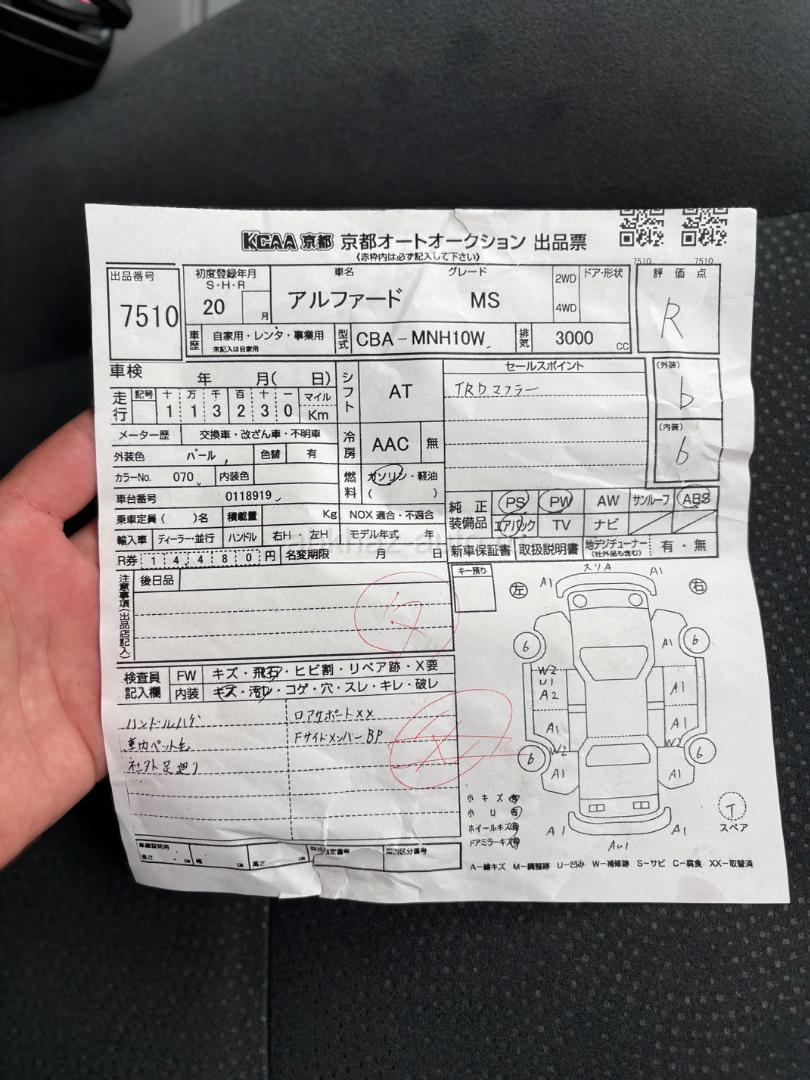 KCAA 京都 京都オートオークション 出品票
《赤枠内は必ず記入して下さい》
7510 7510
出品番号 7510
初度登録年月 S・H・R 20 月
車名 アルファード
グレード MS
2WD 4WD
ドア・形状
評価点 R
車歴 自家用・レンタ・事業用 未記入は自家用
型式 CBA-MNH10W
排気 3000 CC
車検 年 月( 日)
シフト AT
セールスポイント
TRDマフラー
(外装) b
(内装) b
走行 記号 十 万 千 百 十 一 マイル Km
1 1 3 2 3 0
メーター歴 交換車・改ざん車・不明車
冷房 AAC 無
外装色 パール 色替 有
カラーNo. 070 内装色
燃料 ガソリン・軽油 ( )
車台番号 0118919
純正装備品 PS PW AW サンルーフ ABS
エアバック TV ナビ
乗車定員( )名 積載量 Kg NOX 適合・不適合
輸入車 ディーラー・並行 ハンドル 右H 左H モデル年式 年
新車保証書 取扱説明書 地デジチューナー (社外品も含む) 有・無
R券 14,480円 名変期限 月 日
注意事項(出品店記入) 後日品
キー預り
左 右
A1 スリA A1
検査員記入欄 FW キズ・飛石・ヒビ割・リペア跡・X要
内装 キズ・汚れ・コゲ・穴・スレ・キレ・破レ
ハンドルハゲ
車内ペット毛
社外足廻り
ロアサポートXX
FサイドメンバーBP
6 A1 6
W2 U1 A2 A1
A1 A1
6 W2 W2 6
A1 A1
A1 A1
小キズ有
小U有
ホイールキズ有
ドアミラーキズ有
T スペア
A-線キズ M-調整跡 U-凹み W-補修跡 S-サビ C-腐食 XX-取替済
長さ cm 幅 cm 高さ cm